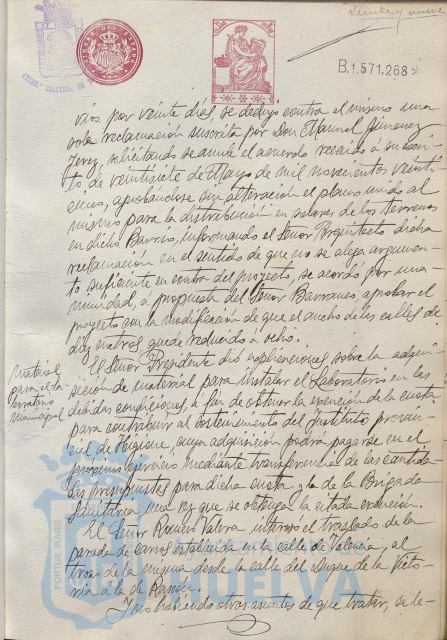 Veinte y nueve
B.1.571.268
vios por veinte dias, se dedujo contra el mismo una
sola reclamación suscrita por Don Manuel Jimenez
Jerez, solicitando se anule el acuerdo recaido a su escri-
to de veintisiete de Mayo de mil novecientos veinti-
cinco, aprobándose sin alteración el plano unido al
mismo para la distribución en solares de los terrenos
en dicho Barrio, informando el Señor Arquitecto dicha
reclamación en el sentido de que no se alega argumen-
to suficiente en contra del proyecto, se acordó por una-
nimidad, a propuesta del Señor Barranco, aprobar el
proyecto con la modificación de que el ancho de las calles de
diez metros quede reducido a ocho.
Material
para el La-
boratorio
municipal
El Señor Presidente dió explicaciones sobre la adqui-
sición de material para instalar el Laboratorio en las
debidas condiciones, a fin de obtener la exención de la cuota
para contribuir al sostenimiento del Instituto provin-
cial de Higiene, cuya adquisición podrá pagarse en el
próximo ejercicio, mediante transferencia de las cantida-
des presupuestas para dicha cuota y la de la Brigada
Sanitaria una vez que se obtenga la citada exención.
El Señor Romero Valera, interesó el traslado de la
parada de carros establecida en la calle de Valencia, al
trozo de la misma desde la calle del Duque de la Victo-
ria a la de Rascón.
Y no habiendo otros asuntos de que tratar, se le-
PORTUS MARIS
Ayuntamiento de
HUELVA